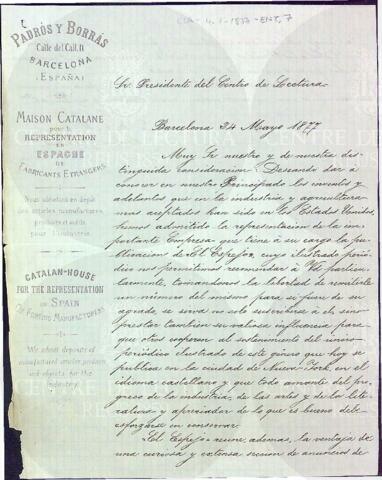 PADRÓS Y BORRÁS
Calle del Call, 11
BARCELONA
(ESPAÑA)
MAISON CATALANE
pour la
REPRESENTATION
EN
ESPAGNE
DE
FABRICANTS ETRANGERS
CATALAN-HOUSE
FOR THE REPRESENTATION
IN SPAIN
OF FOREING MANUFACTURERS
Sr. Presidente del Centro de Lectura
Barcelona 24 Mayo 1877
Muy Sr nuestro y de nuestra dis-
tinguida consideracion: Deseando dar á
conocer en nuestro Principado los inventos y
adelantos que en la industria y agricultura
mas aceptados han sido en los Estados Unidos,
hemos admitido la representacion de la im-
portante Empresa que tiene á su cargo la pu-
blicacion de El Espejo, cuyo ilustrado perió-
dico nos permitimos recomendar á Vd particu-
larmente, tomándonos la libertad de remitirle
un número del mismo para si fuese de su
agrado, se sirva no solo suscribirse á él, sino
prestar tambien su valiosa influencia para
que otros cooperen al sostenimiento del único
periódico ilustrado de este género que hoy se
publica en la ciudad de Nueva-York, en el
idioma castellano y que todo amante del pro-
greso de la industria, de las artes y de la lite-
ratura y apreciador de lo que es bueno debe
esforzarse en conservar.
El Espejo reune, ademas, la ventaja de
una curiosa y extensa seccion de anuncios de